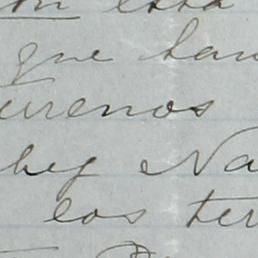 en esta
que tan
urenos
hey Na
los ter